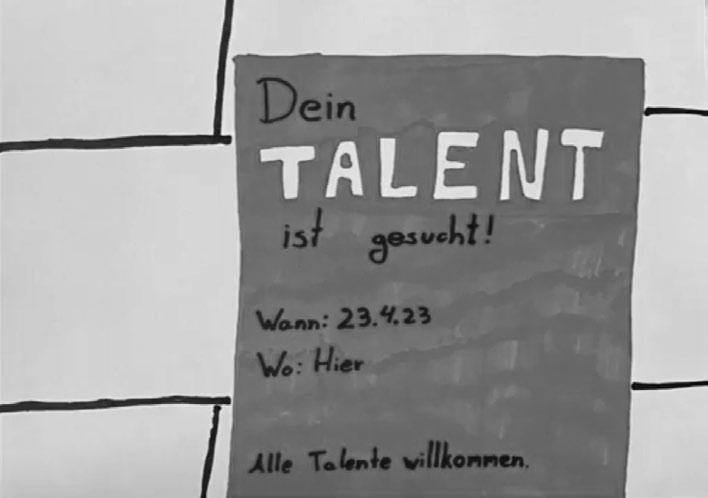 Dein
TALENT
ist gesucht!
Wann: 23.4.23
Wo: Hier
Alle Talente willkommen.